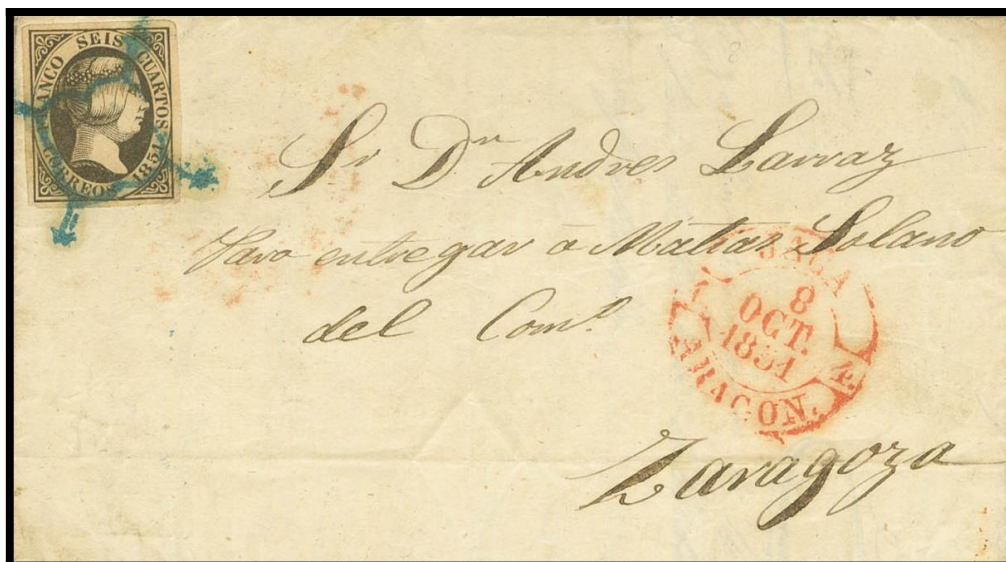 FRANCO SEIS CUARTOS
CORREOS 1851
Sr Dn Andres Larraz
Para entregar á Matias Solano
del Como
8
OCT.
1851
ARAGON.
Zaragoza